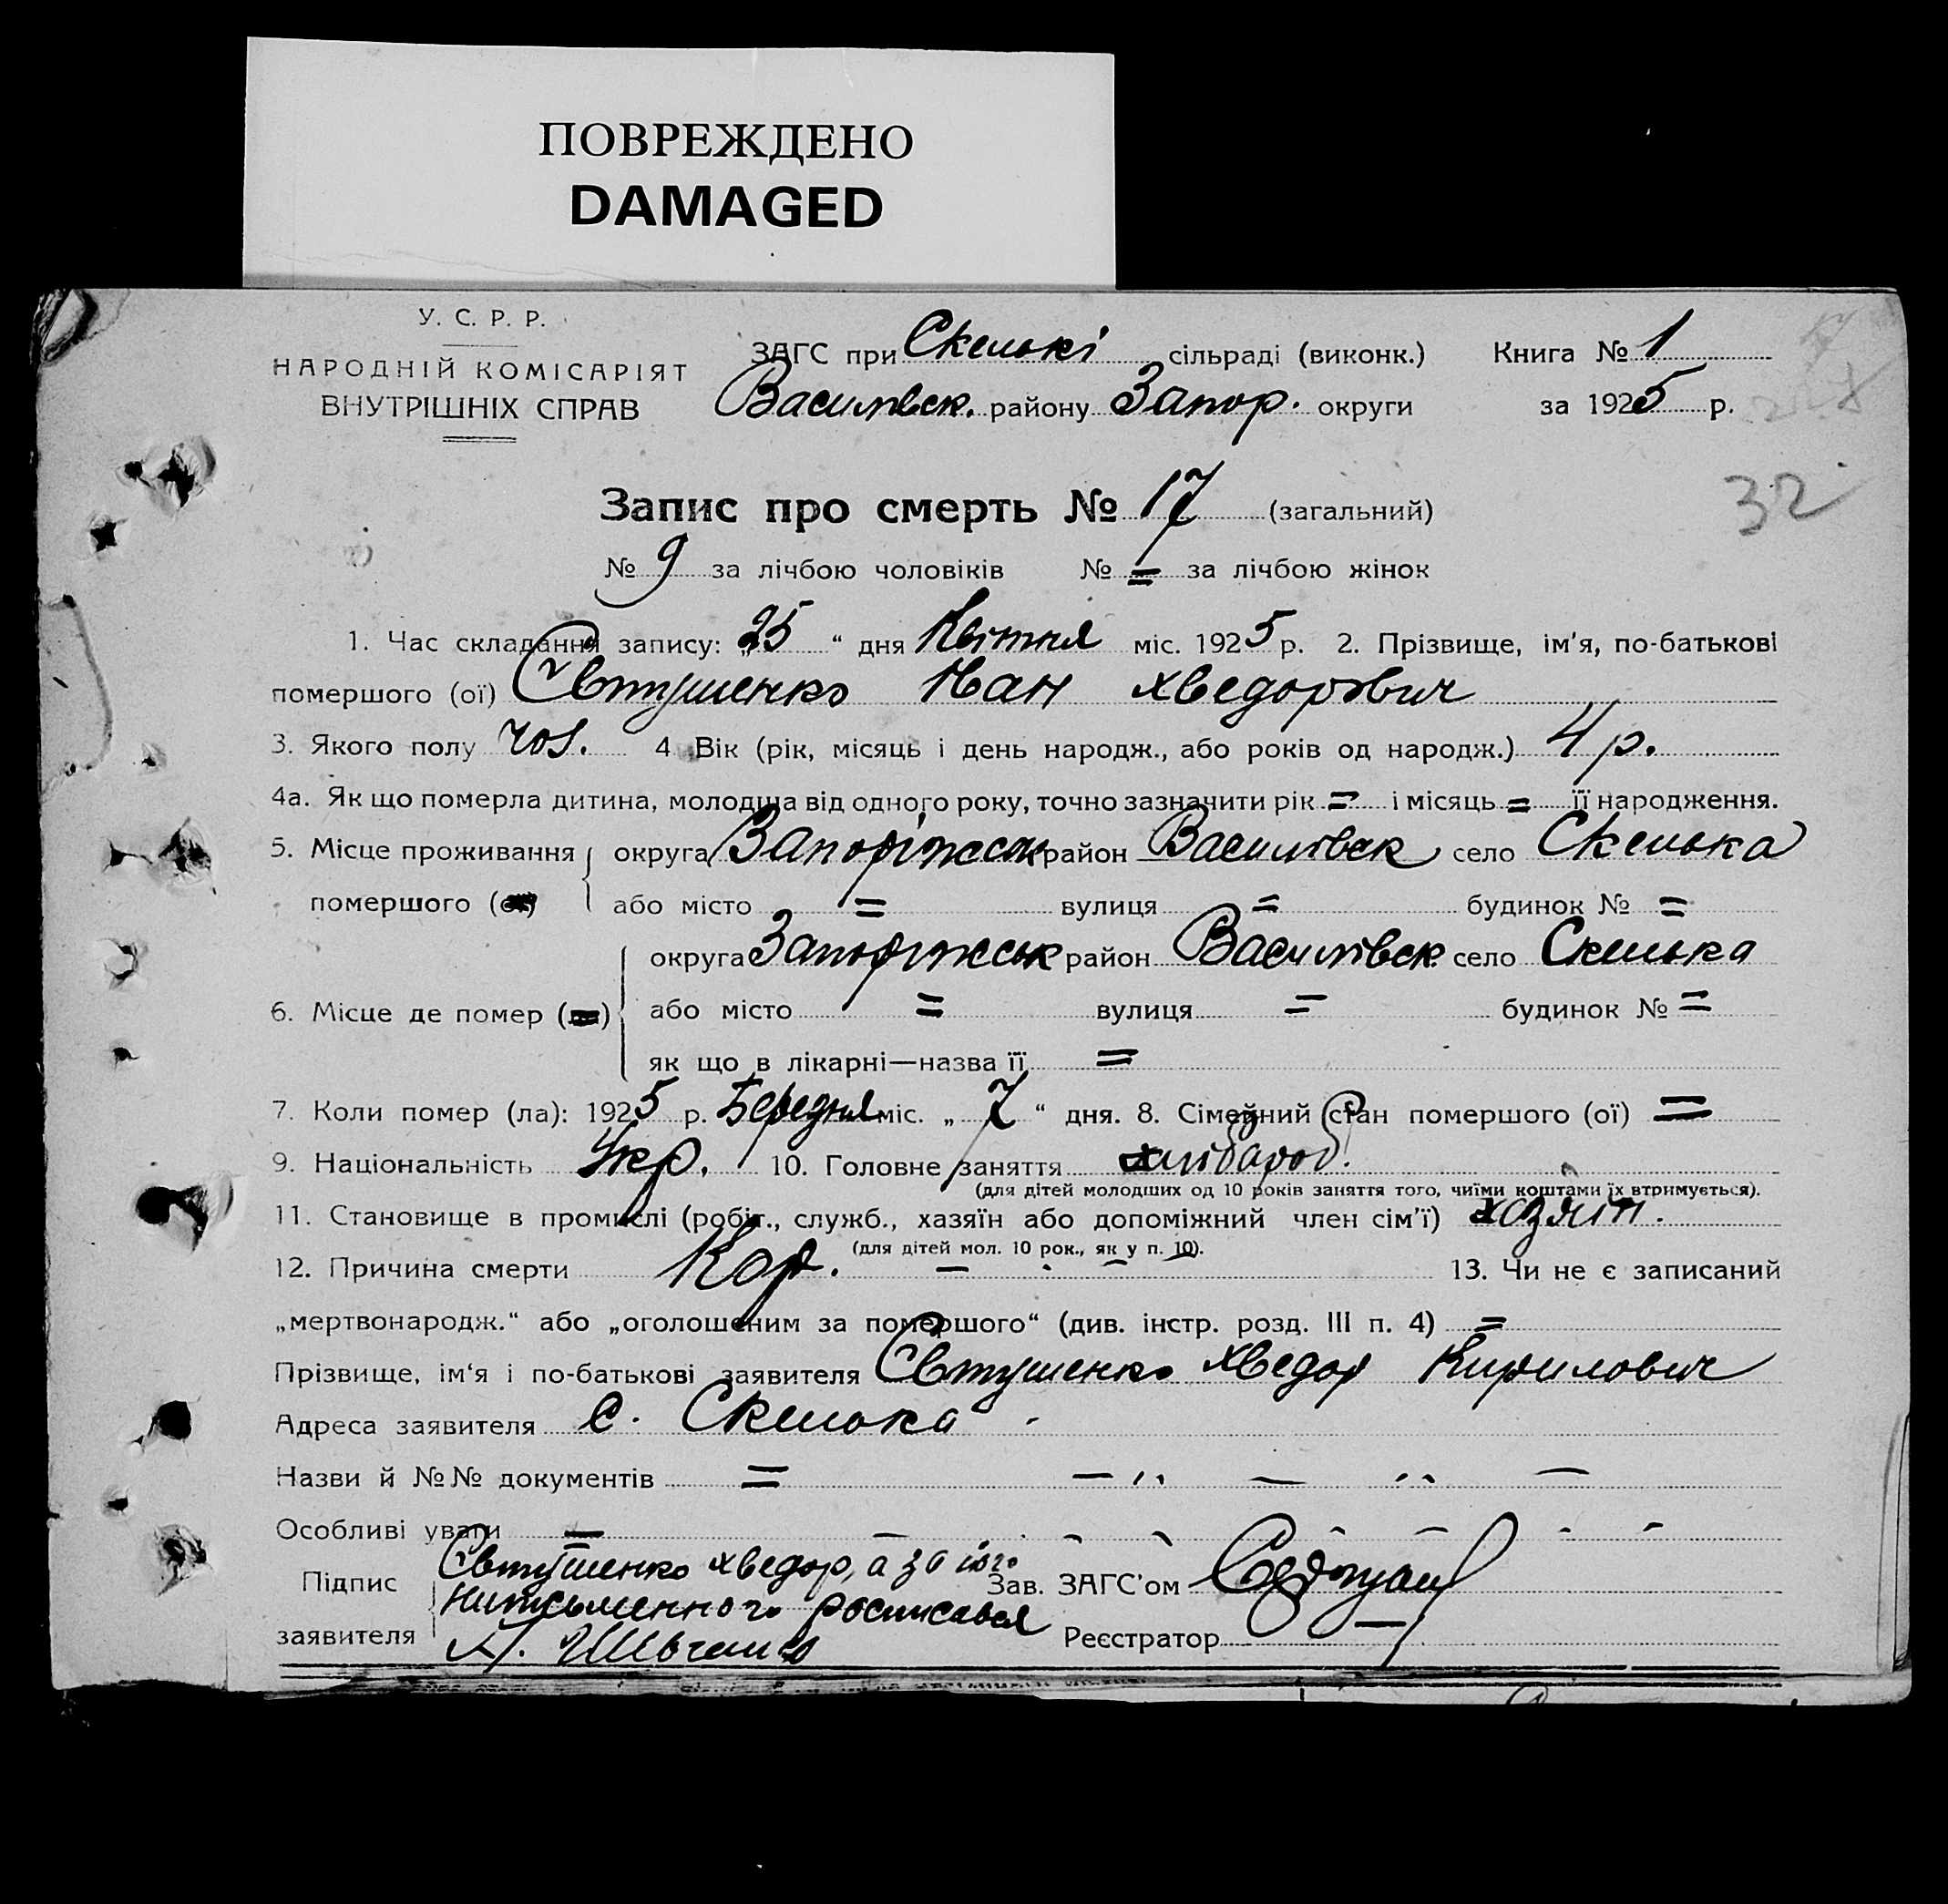 ПОВРЕЖДЕНО
DAMAGED
У. С. Р. Р.
НАРОДНІЙ КОМІСАРІЯТ
ВНУТРІШНІХ СПРАВ
ЗАГС при Скелькі сільраді (виконк.) Книга № 1
Василівск. району Запор. округи за 1925 р.
32
Запис про смерть № 17 (загальний)
№ 9 за лічбою чоловіків № = за лічбою жінок
1. Час складання запису: „25“ дня Квітня міс. 1925 р. 2. Прізвище, ім'я, по-батькові
помершого (ої) Євтушенко Иван Хведорович
3. Якого полу чол. 4. Вік (рік, місяць і день народж., або років од народж.) 4 р.
4а. Як що померла дитина, молодша від одного року, точно зазначити рік = і місяць = її народження.
5. Місце проживання округа Запоріжськ район Василівск село Скелька
помершого або місто = вулиця = будинок № =
округа Запоріжськ район Василівск село Скелька
6. Місце де помер або місто = вулиця = будинок № =
як що в лікарні—назва її =
7. Коли помер (ла): 1925 р. Березня міс. „7“ дня. 8. Сімейний стан помершого (ої) =
9. Національність Укр. 10. Головне заняття хлібороб.
(для дітей молодших од 10 років заняття того, чиїми коштами їх втримується).
11. Становище в промислі (робіт., служб., хазяїн або допоміжний член сім'ї) хозяїн.
(для дітей мол. 10 рок., як у п. 10).
12. Причина смерти Кор. 13. Чи не є записаний
„мертвонародж.“ або „оголошеним за помершого“ (див. інстр. розд. III п. 4) =
Прізвище, ім'я і по-батькові заявителя Євтушенко Хведор Кирилович
Адреса заявителя с. Скелька
Назви й №№ документів = — „ — „ —
Особливі уваги =
Підпис Євтушенко Хведор, а за його Зав. ЗАГС'ом
неписьменного росписався
заявителя Реєстратор